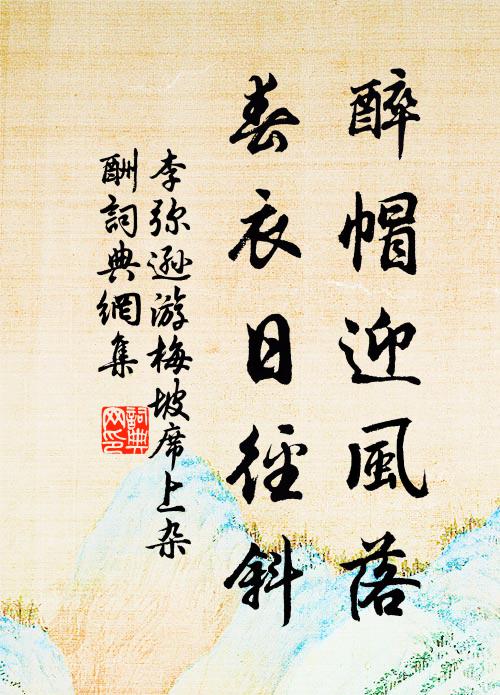 醉帽迎風落
春衣日徑斜
李弥遜游梅坡席上杂
酬詞典網集
詞典網印